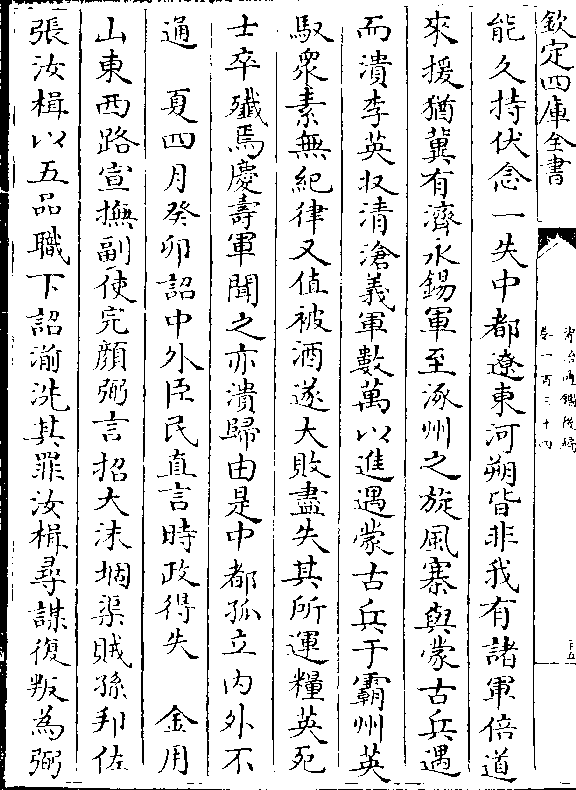 欽定四庫全書
資治通鑑後編
卷一百三十四
能久持伏念一失中都遼東河朔皆非我有諸軍倍道
來援猶冀有濟永錫軍至涿州之旋風寨與蒙古兵遇
而潰李英收清滄義軍數萬以進遇蒙古兵于霸州英
馭衆素無紀律又值被酒遂大敗盡失其所運糧英死
士卒殱焉慶壽軍聞之亦潰歸由是中都孤立内外不
通　夏四月癸卯詔中外臣民直言時政得失　金用
山東西路宣撫副使完顔弼言招大沬堌渠賊孫邦佐
張汝楫以五品職下詔湔洗其罪汝楫尋謀復叛為弼